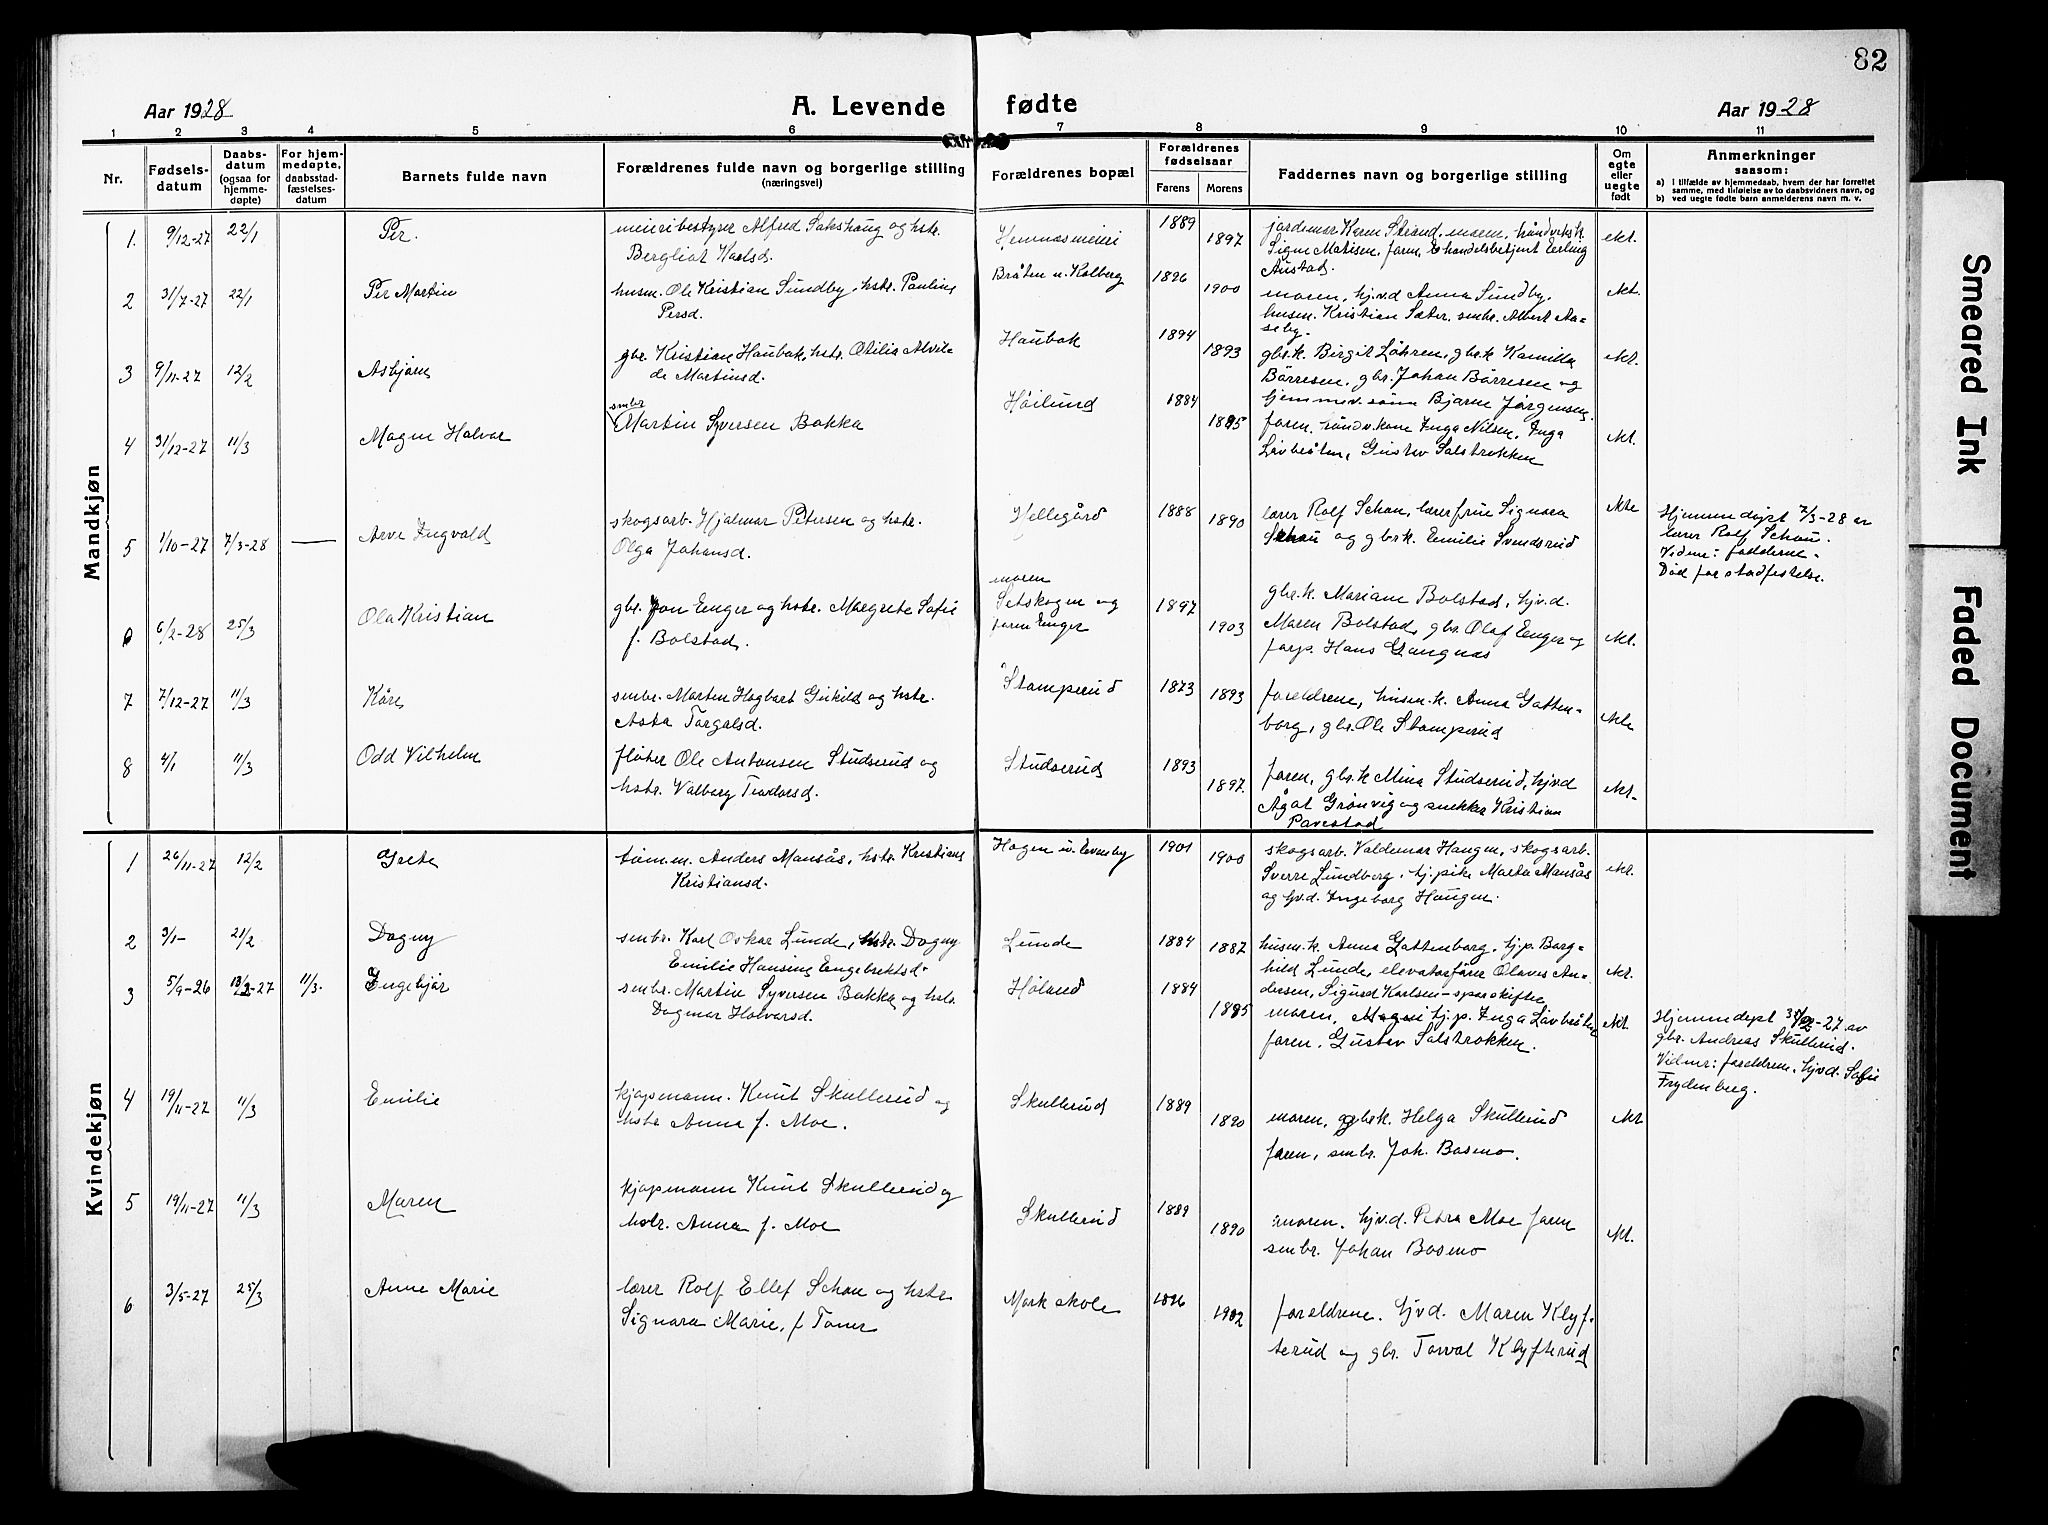 82
Aar 1928 A. Levende fødte Aar 1928
1 2 3 4 5 6 7 8 9 10 11
Nr.
Fødsels-
datum
Daabs-
datum
(ogsaa for
hjemme-
døpte)
For hjem-
medøpte,
daabsstad-
fæstelses-
datum
Barnets fulde navn
Forældrenes fulde navn og borgerlige stilling
(næringsvei)
Forældrenes bopæl
Forældrenes
fødselsaar
Farens Morens
Faddernes navn og borgerlige stilling
Om
egte
eller
uegte
født
Anmerkninger
saasom:
a) i tilfælde av hjemmedaab, hvem der har forrettet
samme, med tilføielse av to daabsvidners navn, og
b) ved uegte fødte barn anmelderens navn m. v.
Mandkjøn
1. 9/12-27 22/1 Per. meieribestyrer Alfred Sakshaug og hstr.
Bergliot Karlsd.
Hemnæs meieri 1889 1897
jordemor Karen Strand, moren, håndv.k.
Signe Matisen, faren, handelsbetjent Erling
Austad.
ekt.
2 31/7-27 22/1 Per Martin husm. Ole Kristian Sundby, hstr. Pauline
Persd.
Bråten u. Kolberg 1896 1900
moren, hjv.d Anna Sundby,
husm. Kristian Sæter, smbr. Albert Aa-
seby.
ekt.
3 9/11-27 12/2 Asbjørn gbr. Kristian Haubak, hstr. Otilie Alvil-
de Martinsd.
Haubak 1894 1893
gbr.k. Birgit Løhren, gbr.k Kamilla
Børresen, gbr. Johan Børresen og
hjemmev. sønn Bjarne Jørgensen.
ekt.
4 31/12-27 11/3 Magne Halvor smbr
Martin Syversen Bakka
Høilund 1884 1895
faren, håndv.kone Inga Nilsen, Inga
Lavbråten, Gustav Salstrokken
ekt.
5 1/10-27 7/3-28 — Arve Ingvald skogsarb. Hjalmar Petersen og hstr.
Olga Johansd.
Hellegård 1888 1890
lærer Rolf Schau, lærerfrue Signora
Schau og gbr.k. Emilie Svendsrud
ekte
Hjemmedøpt 7/3-28 av
lærer Rolf Schau.
Vidner: fadderne.
Død før stadfestelse.
6/2-28 25/3 Ola Kristian gbr. Jon Enger og hstr. Margrete Sofie
f. Bolstad.
moren
Setskogen og
faren Enger
1897 1903
gbr.k. Mariane Bolstad, hjv.d.
Maren Bolstad, gbr. Olaf Enger og
forp. Hans Gangnæs
ekt.
7 7/12-27 11/3 Kåre smbr. Marten Hagbart Giskild og hstr.
Asta Torgalsd.
Stamperud 1873 1893
foreldrene, husm.k. Anna Gatten-
borg, gbr. Ole Stamperud
ekte
8 4/1 11/3 Odd Vilhelm fløter Ole Antonsen Studserud og
hstr. Valborg Teodorsd.
Studserud 1893 1897.
faren, gbr.k Mina Studserud, hjv.d
Ågot Grønvig og snekker Kristian
Pavestad
ekt.
Kvindekjøn
1 26/11-27 12/2 Grete tømm. Anders Mansås, hstr. Kristiane
Kristiansd.
Hagen u. Evenby 1901 1900
skogsarb. Valdemar Haugen, skogsarb.
Sverre Lundberg, hj.pike Marta Mansås
og hjv.d. Ingeborg Haugen.
ekt.
2 3/1- 21/2 Dagny smbr. Karl Oskar Lunde, hstr. Dagny
Emilie Hansine Engebrektsd.
Lunde 1884 1887
husm.k. Anna Gattenborg, hj.p. Borg-
hild Lunde, elevatorfører Olaves An-
dersen, Sigurd Karlsen - sporskifter
ekt.
3 5/9-26 11/3. Ingebjør smbr. Martin Syversen Bakka og hstr.
Dagmar Halvorsd.
Høland 1884 1895
moren, hj.p. Inga Lavbråten
faren, Gustav Salstrokken.
ekt.
Hjemmedøpt -27 av
gbr. Andreas Skullerud.
Vidner: foreldrene, hjv.d. Sofie
Frydenberg.
4 19/11-27 11/3 Emilie kjøpmann. Knut Skullerud og
hstr Anna f. Moe.
Skullerud 1889 1890
moren, gbr.k. Helga Skullerud
faren, smbr. Joh. Bosmo.
ekt
5 19/11-27 11/3 Maren kjøpmann Knut Skullerud og
hstr. Anna f. Moe
Skullerud 1889 1890
moren, hjv.d. Petra Moe faren
smbr. Johan Bosmo
ekt.
6 3/5-27 25/3 Anne Marie lærer Rolf Ellef Schau og hstr
Signora Marie, f. Toner
Mark skole 1896 1902
foreldrene. hjv.d. Maren Klyf-
terud og gbr. Torval Klyfterud
Smeared Ink
Faded Document